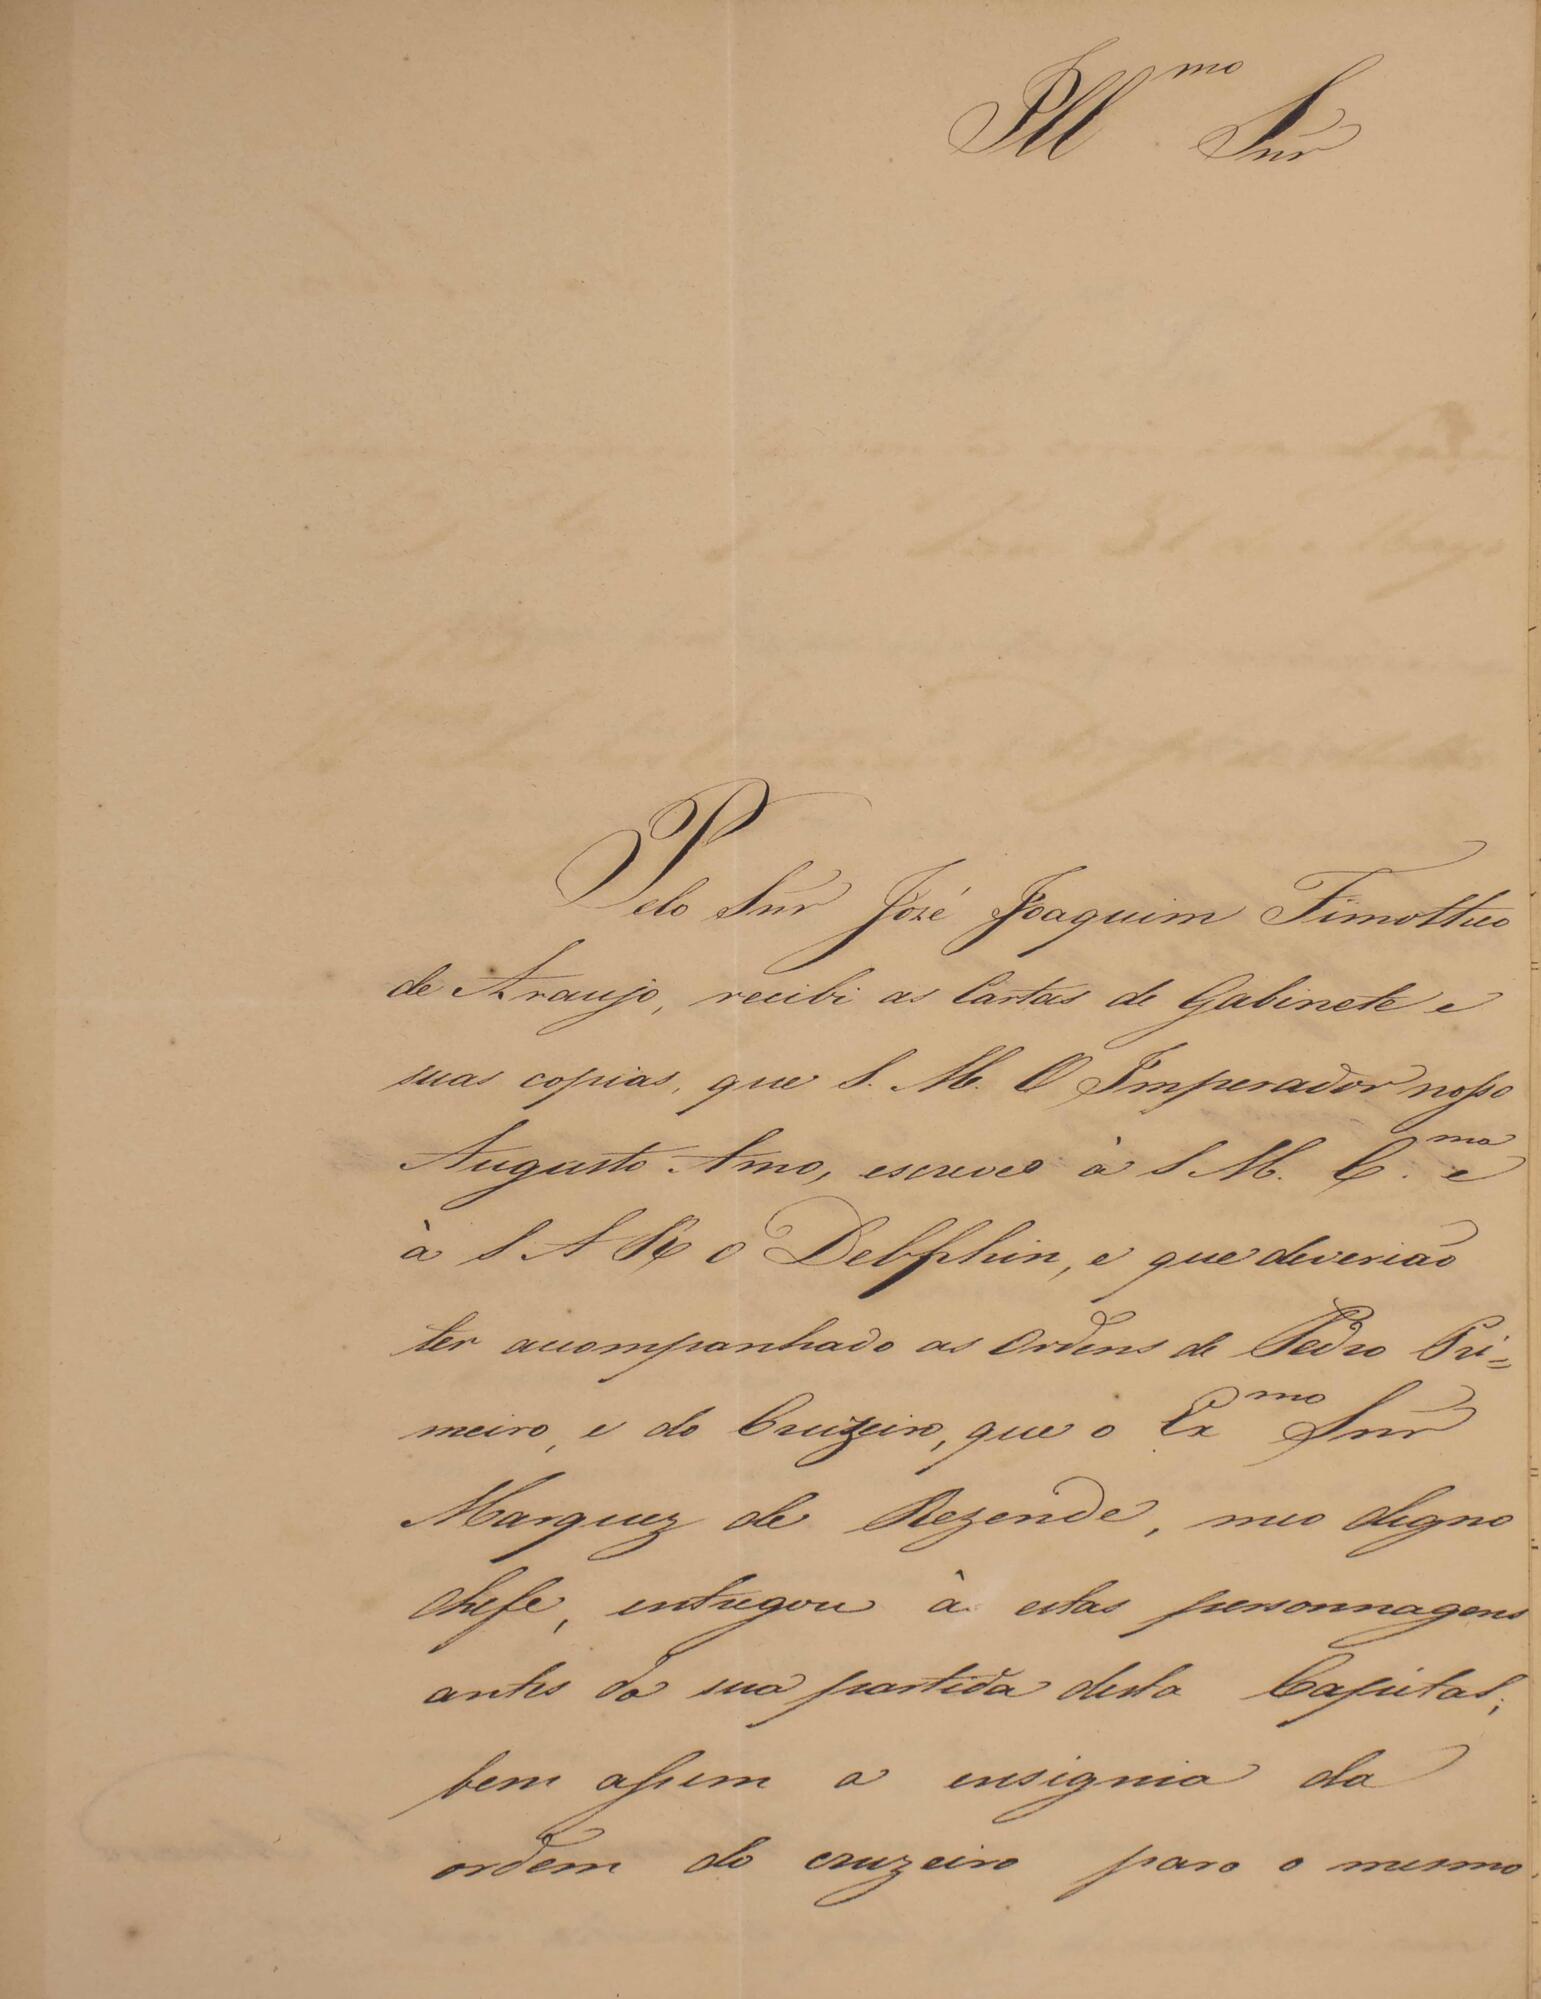 Ill.mo Snr
Pelo Snr José Joaquim Timotheo
de Araujo, recibi as Cartas de Gabinete e
suas copias, que S. M. O Imperador nosso
Augusto Amo, escreveo à S M. C.ma e
à S A R o Delphin, e que deverião
ter acompanhado as Ordens de Pedro Pri=
meiro, e do Cruzeiro, que o Ex.mo Snr
Marquez de Rezende, meo digno
chefe, entregou à estas personnagens
antes da sua partida desta Capital;
bem assim a insignia da
ordem do cruzeiro para o mesmo